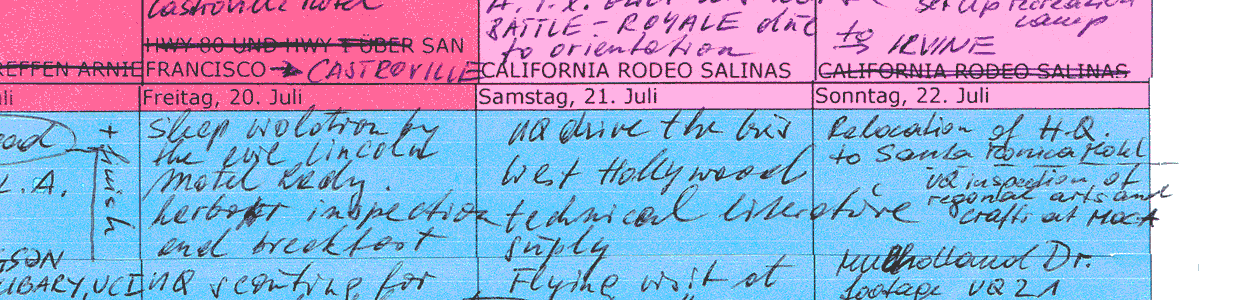 Castroville Hotel
HWY 80 UND HWY 1 ÜBER SAN
REFFEN ARNIE
FRANCISCO → CASTROVILLE
BATTLE - ROYALE due
to orientation
CALIFORNIA RODEO SALINAS
set up recreation
camp
to IRVINE
CALIFORNIA RODEO SALINAS
Freitag, 20. Juli
Samstag, 21. Juli
Sonntag, 22. Juli
L.A.
sleep violation by
the evil lincoln
Motel Lady.
harbor inspection
and breakfast
UQ drive the bus
West Hollywood
technical literature
suply
Relocation of H.Q.
to Santa Monica Motel
UQ inspection of
regional arts and
crafts at MOCA
Mulholland Dr.
footage UQ 21
UQ scouting for
Flying visit at